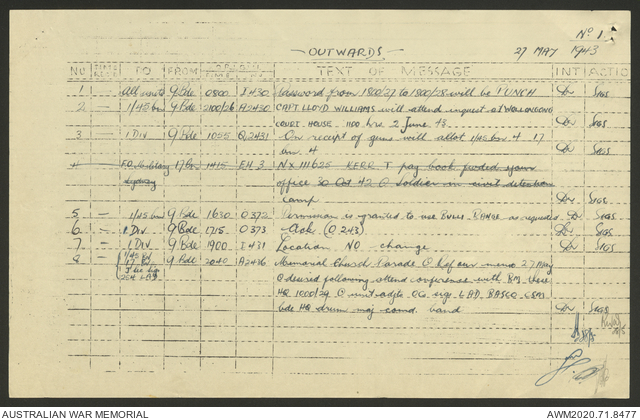 No 1
OUTWARDS
27 MAY 1943
No TO FROM TEXT OF MESSAGE INT ACTION
1 All units 9 Bde 0800 I 430 Password from 1800/27 to 1800/28 will be PUNCH Sigs
2 — 1/45 bn 9 Bde 2100/26 A2430 CAPT LLOYD WILLIAMS will attend inquest at WOLLONGONG
COURT HOUSE 1100 hrs 2 June 43 Sigs
3 — 1 DIV 9 Bde 1055 Q2431 On receipt of guns will allot 1/45 bn 4 17
bn 4 Sigs
4 17 bn 1415 3 NX 111625 KERR T pay book
Sydney office 30 Oct 42 @ soldier in civil detention
camp Sigs
5 — 1/45 bn 9 Bde 1630 O 372 Permission is granted to use BULLI RANGE as requested Sigs
6 — 1 DIV 9 Bde 1715 O 373 (O 243) Sigs
7 — 1 DIV 9 Bde 1900 I 431 Location NO change Sigs
8 — 1/45 bn 9 Bde 2040 A2436 Memorial Church Parade @ our memo 27 May
17 bn @ desired following attend conference with BM
HQ 1000/29 @ unit adjts OC sigs LAD BASCO
bde HQ drum maj comd band Sigs
AUSTRALIAN WAR MEMORIAL
AWM2020.71.8477